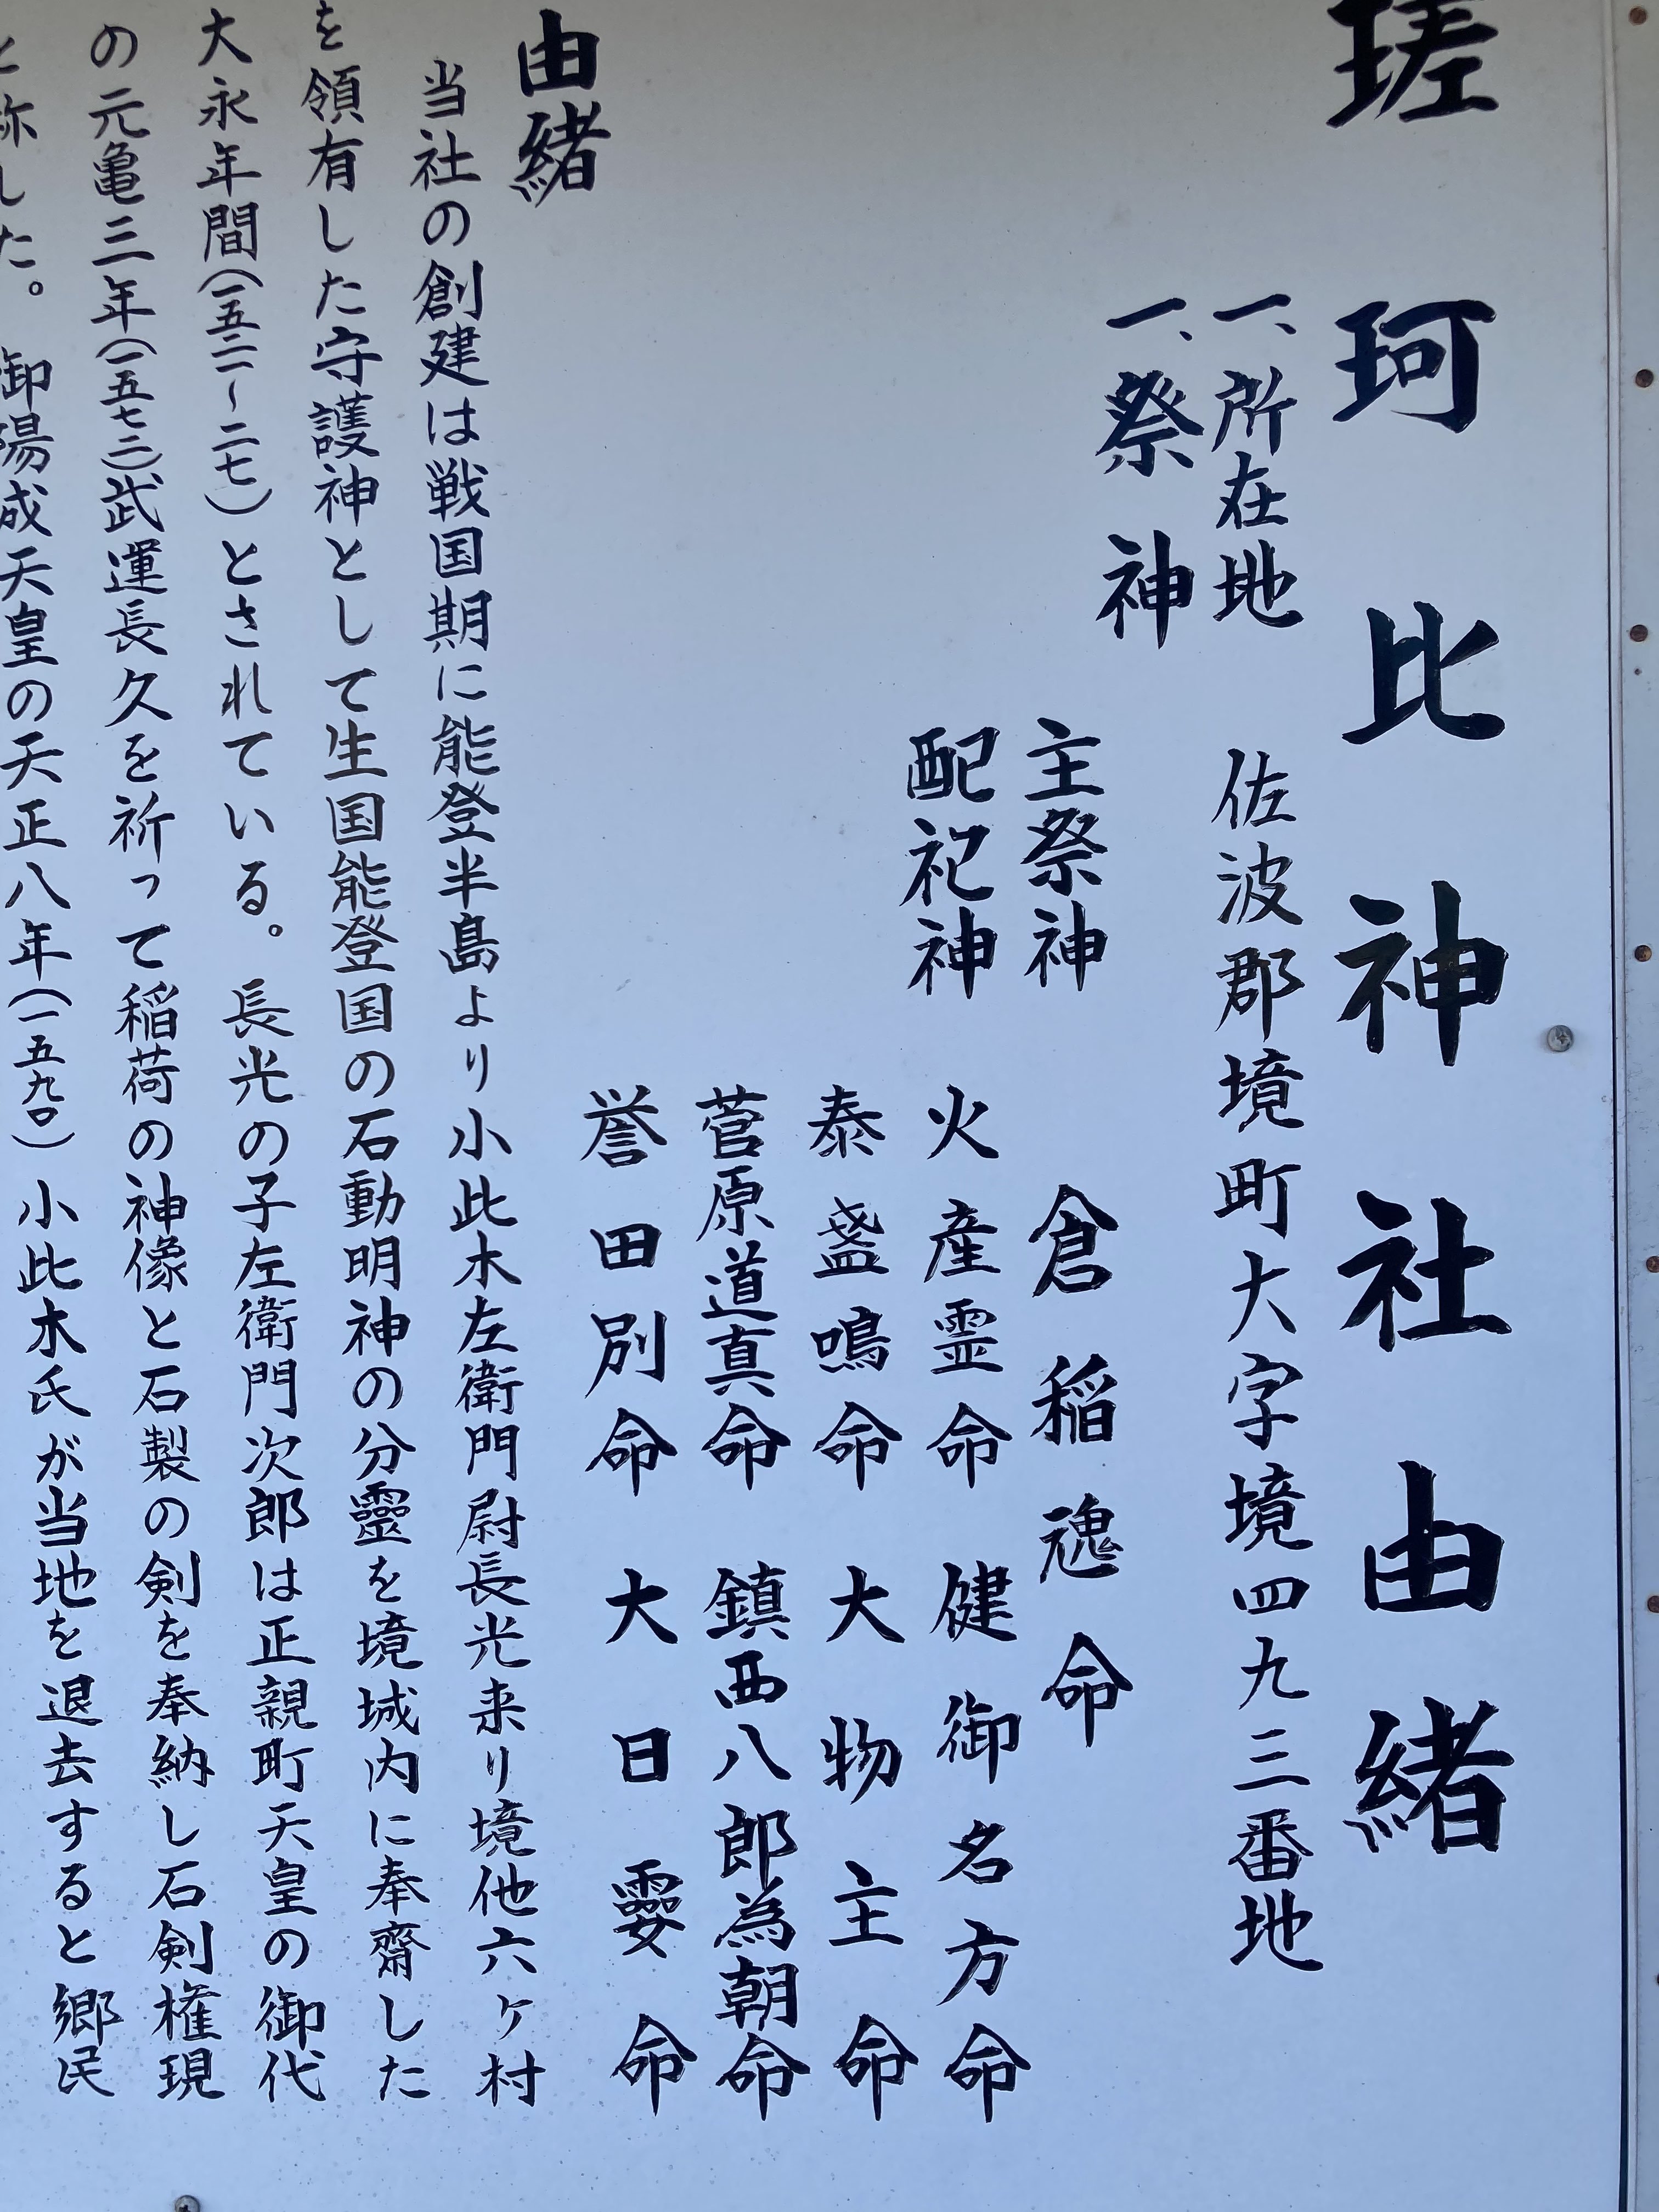 瑳珂比神社由緒
一、所在地 佐波郡境町大字境四九三番地
一、祭神
主祭神 倉稲魂命
配祀神 火産霊命 健御名方命
泰盞鳴命 大物主命
菅原道真命 鎮西八郎為朝命
誉田別命 大日孁命
由緒
当社の創建は戦国期に能登半島より小此木左衛門尉長光来り境他六ケ村
を領有した守護神として生国能登国の石動明神の分靈を境城内に奉齋した
大永年間(一五二一~二七)とされている。長光の子左衛門次郎は正親町天皇の御代
の元亀三年(一五七二)武運長久を祈って稲荷の神像と石製の剣を奉納し石剣権現
と称した。御陽成天皇の天正八年(一五九〇)小此木氏が当地を退去すると郷民